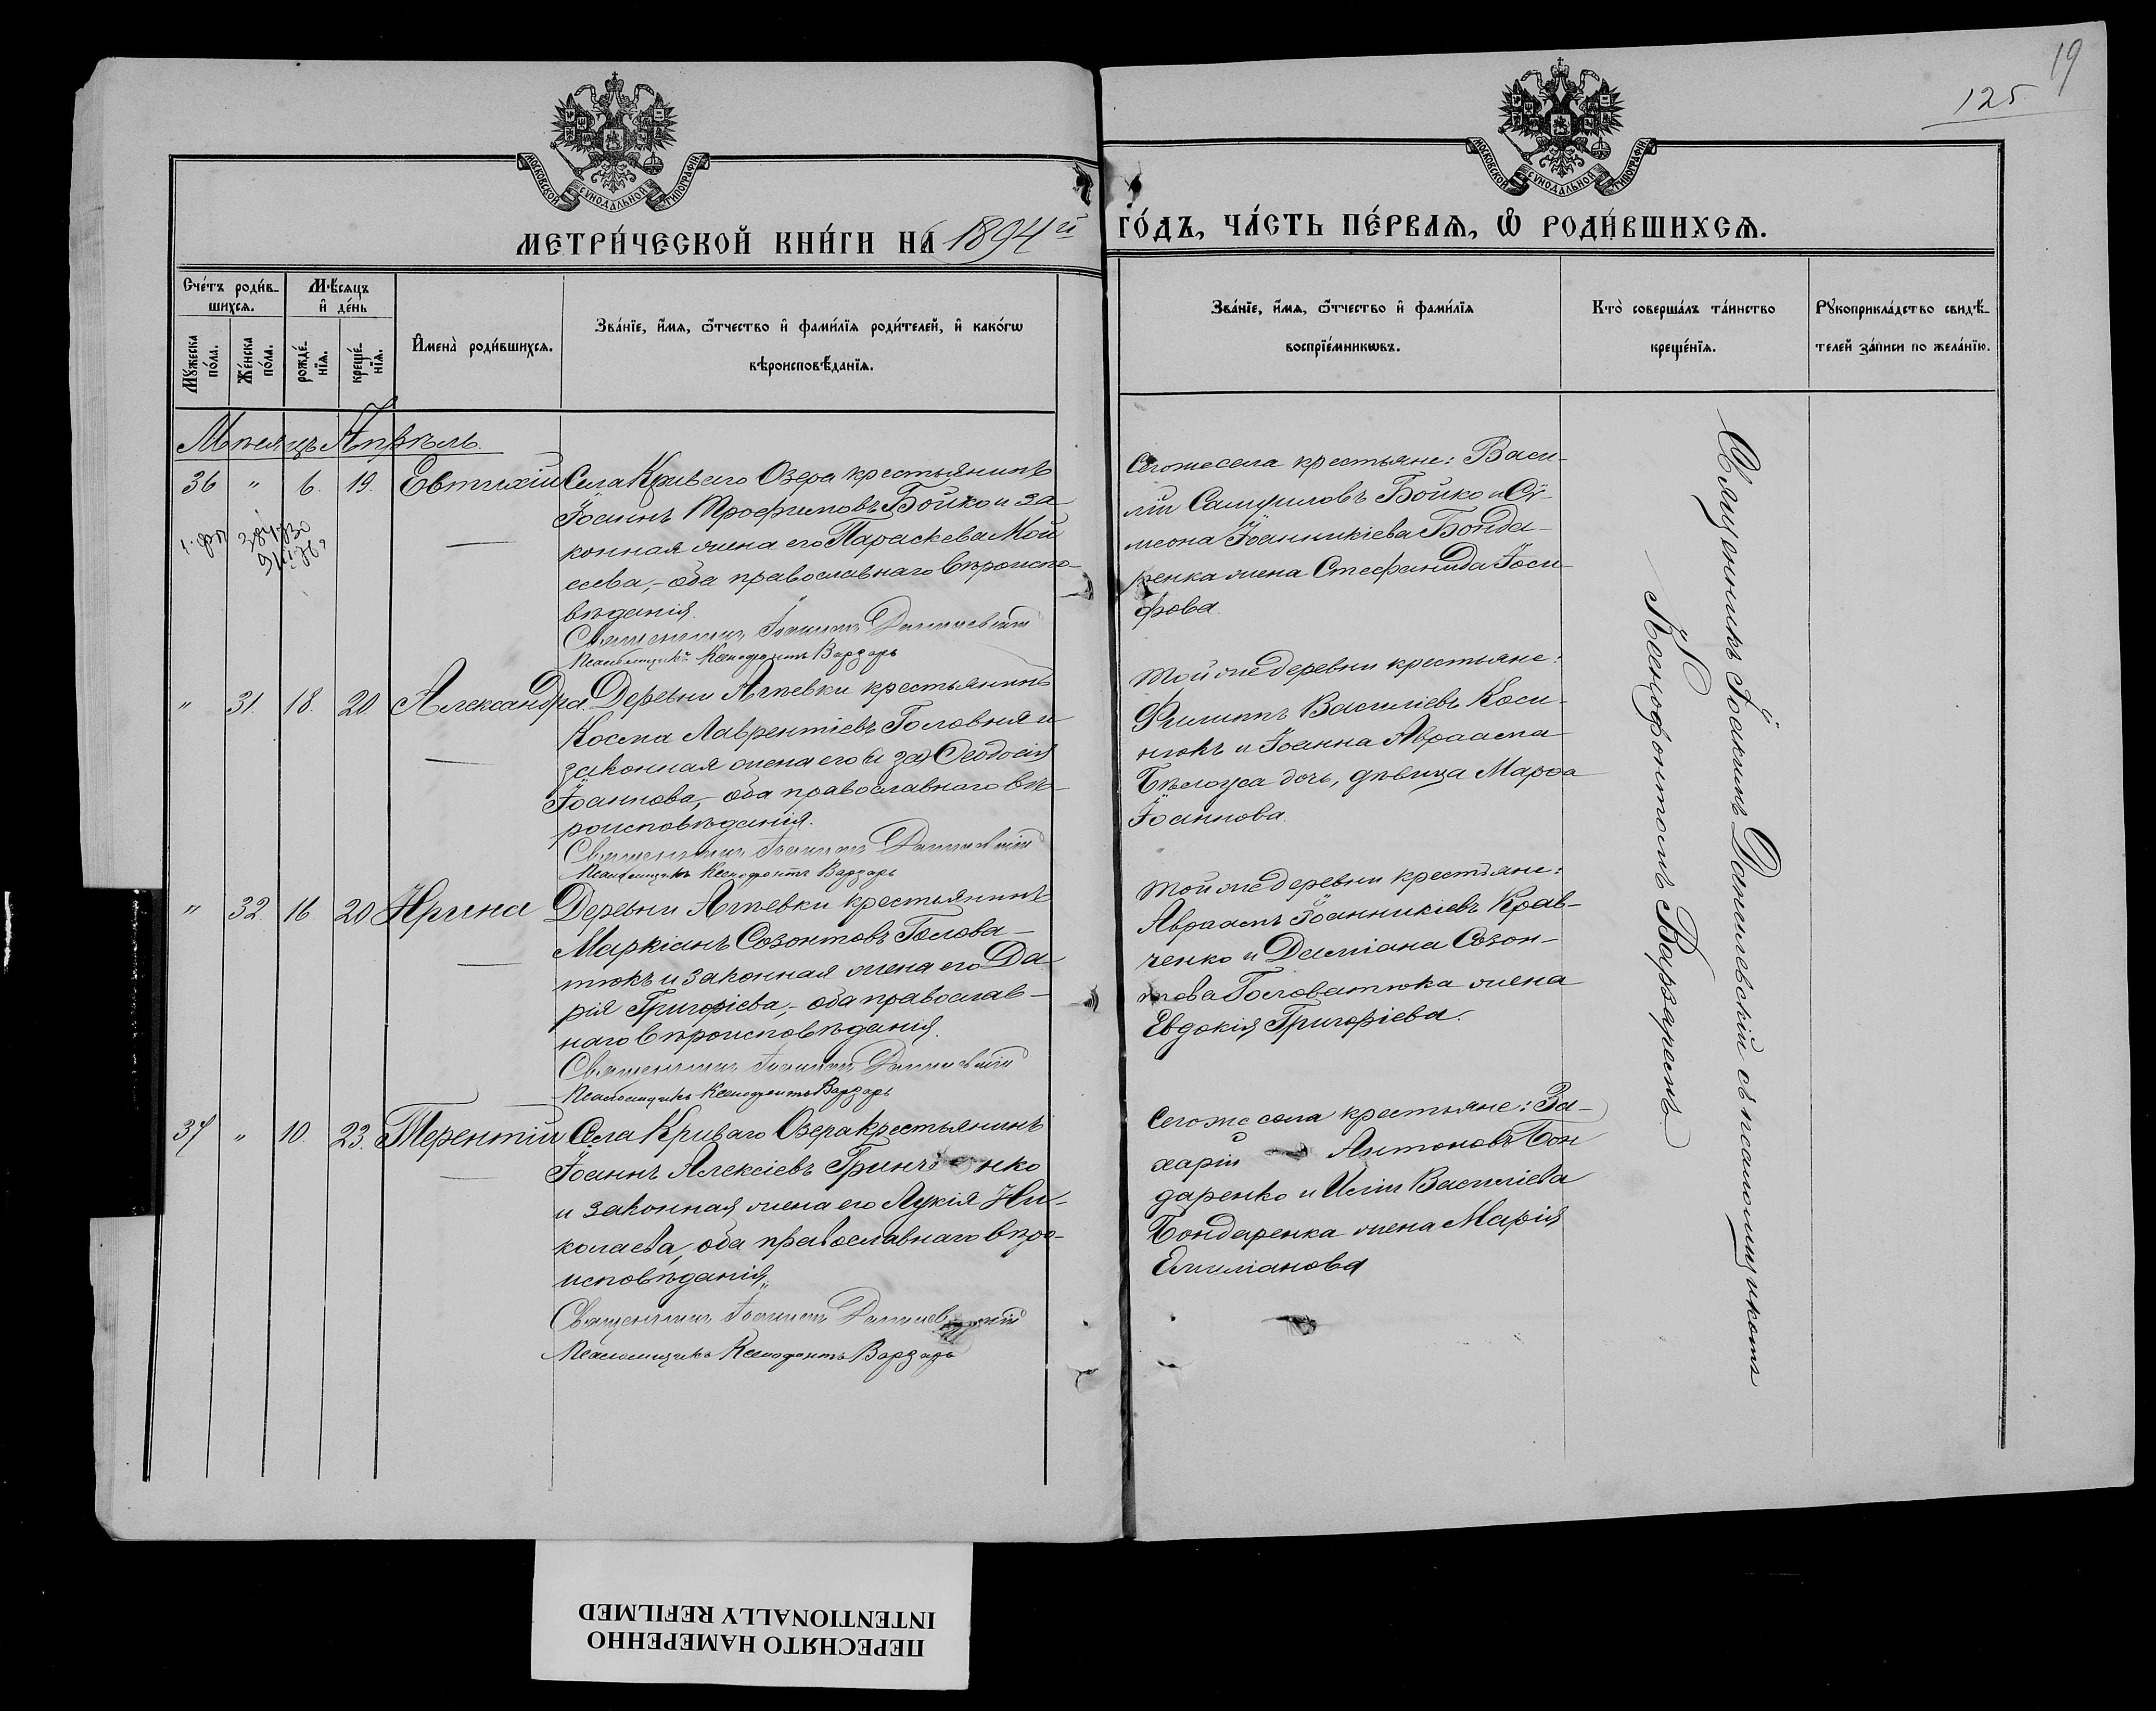 19
125.
МОСКОВСКОЙ СУНОДАЛЬНОЙ ТИПОГРАФІИ
МОСКОВСКОЙ СУНОДАЛЬНОЙ ТИПОГРАФІИ
МЕТРИ́ЧЕСКОЙ КНИ́ГИ НА 1894й ГО́ДЪ, ЧА́СТЬ ПЕ́РВАѦ, Ѡ҆ РОДИ́ВШИХСѦ.
Счéтъ роди́в-
шихсѧ.
Мꙋ́жеска
по́ла.
Же́нска
по́ла.
Мѣ́сѧцъ
и҆ де́нь
рожде́-
нїѧ.
креще́-
нїѧ.
И҆мена̀ роди́вшихсѧ.
Зва́нїе, и҆́мѧ, ѻ҆́тчество и҆ фами́лїѧ роди́телей, и҆ како́гѡ
вѣроисповѣ́данїѧ.
Зва́нїе, и҆́мѧ, ѻ҆́тчество и҆ фами́лїѧ
воспрїе́мникѡвъ.
Кто̀ соверша́лъ та́инство
креще́нїѧ.
Рꙋкоприкла́дство свидѣ́-
телей за́писи по жела́нїю.
Мѣсяцъ Апрѣль.
36 " 6. 19. Евтихій
Села Криваго Озера крестьянинъ
Іоаннъ Трофимовъ Бойко и за-
конная жена его Параскева Мой
сеева, - оба православнаго вѣроиспо-
вѣданія.
Священникъ Іоакимъ Данилевскій
Псаломщикъ Ксенофонтъ Варзарь
Сегоже села крестьяне: Васи-
лій Самуиловъ Бойко и Сѵ-
меона Іоанникіева Бонда-
ренка жена Стефанида Іоси-
фова.
" 31. 18. 20. Александра.
Деревни Агѣевки крестьянинъ
Косма Лаврентіевъ Головня и
законная жена его Ѳеодосія
Іоаннова, - оба православнаго вѣ-
роисповѣданія.
Священникъ Іоакимъ Данилевскій
Псаломщикъ Ксенофонтъ Варзарь
Той же деревни крестьяне:
Филиппъ Василіевъ Коси-
нюкъ и Іоанна Авраама
Бѣлоуса дочь, дѣвица Марѳа
Іоаннова.
" 32. 16 20 Ирина
Деревни Агѣевки крестьянинъ
Маркіанъ Созонтовъ Голова-
тюкъ и законная жена его Да-
рія Григоріева, - оба православ-
наго вѣроисповѣданія.
Священникъ Іоакимъ Данилевскій
Псаломщикъ Ксенофонтъ Варзарь
Той же деревни крестьяне:
Авраамъ Іоанникіевъ Крав-
ченко и Даміана Созон-
това Головатюка жена
Евдокія Григоріева.
37 " 10. 23. Терентій
Села Криваго Озера крестьянинъ
Іоаннъ Алексіевъ Гринченко
и законная жена его Лукія Ни-
колаева, оба православнаго вѣро-
исповѣданія.
Священникъ Іоакимъ Данилевскій
Псаломщикъ Ксенофонтъ Варзарь
Сегоже села крестьяне: За-
харій Антоновъ Бон
даренко и Иліи Василіева
Бондаренка жена Марія
Емиліанова
Священникъ Іоакимъ Данилевскій съ псаломщикомъ
Ксенофонтомъ Варзаремъ.
ПЕРЕСНЯТО НАМЕРЕННО
INTENTIONALLY REFILMED